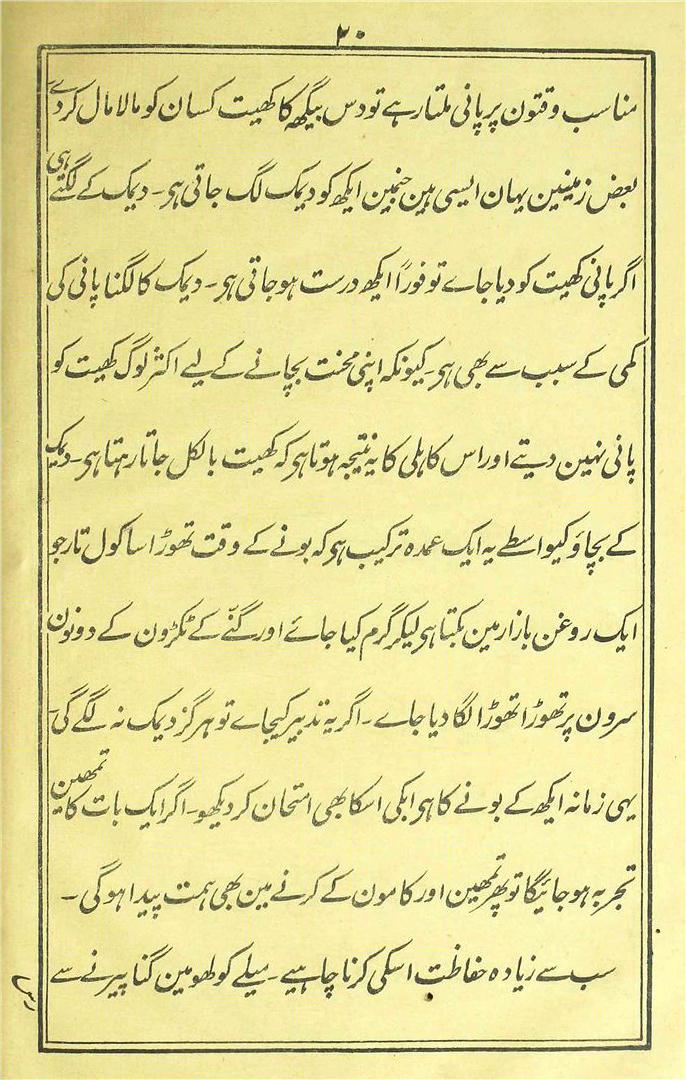 ۲۰
مناسب وقتون پر پانی ملتا رہے تو دس بیگھہ کا کھیت کسان کو مالا مال کردے
بعض زمینین یہان ایسی ہین جنمین ایکھ کو دیمک لگ جاتی ہی۔ دیمک کے لگتے ہی
اگر پانی کھیت کو دیا جاے تو فوراً ایکھ درست ہوجاتی ہی۔ دیمک کا لگنا پانی کی
کمی کے سبب سے بھی ہی۔ کیونکہ اپنی محنت بچانے کے لیے اکثر لوگ کھیت کو
پانی نہین دیتے اور اس کاہلی کا یہ نتیجہ ہوتا ہی کہ کھیت بالکل جاتا رہتا ہی۔ دیمک
کے بچاؤ کیواسطے یہ ایک عمدہ ترکیب ہی کہ بونے کے وقت تھوڑا سا کول تار جو
ایک روغن بازار مین بکتا ہی لیکر گرم کیا جائے اور گنّے کے ٹکڑون کے دونون
سرون پر تھوڑا تھوڑا لگا دیا جاے۔ اگر یہ تدبیر کیجاے تو ہرگز دیمک نہ لگے گی
یہی زمانہ ایکھ کے بونے کا ہی ابکی اسکا بھی امتحان کر دیکھو۔ اگر ایک بات کا تمھین
تجربہ ہو جائیگا تو پھر تمھین اور کامون کے کرنے مین بھی ہمت پیدا ہوگی۔
سب سے زیادہ حفاظت اسکی کرنا چاہیے۔ میلے کولھو مین گنا پیرنے سے
رس